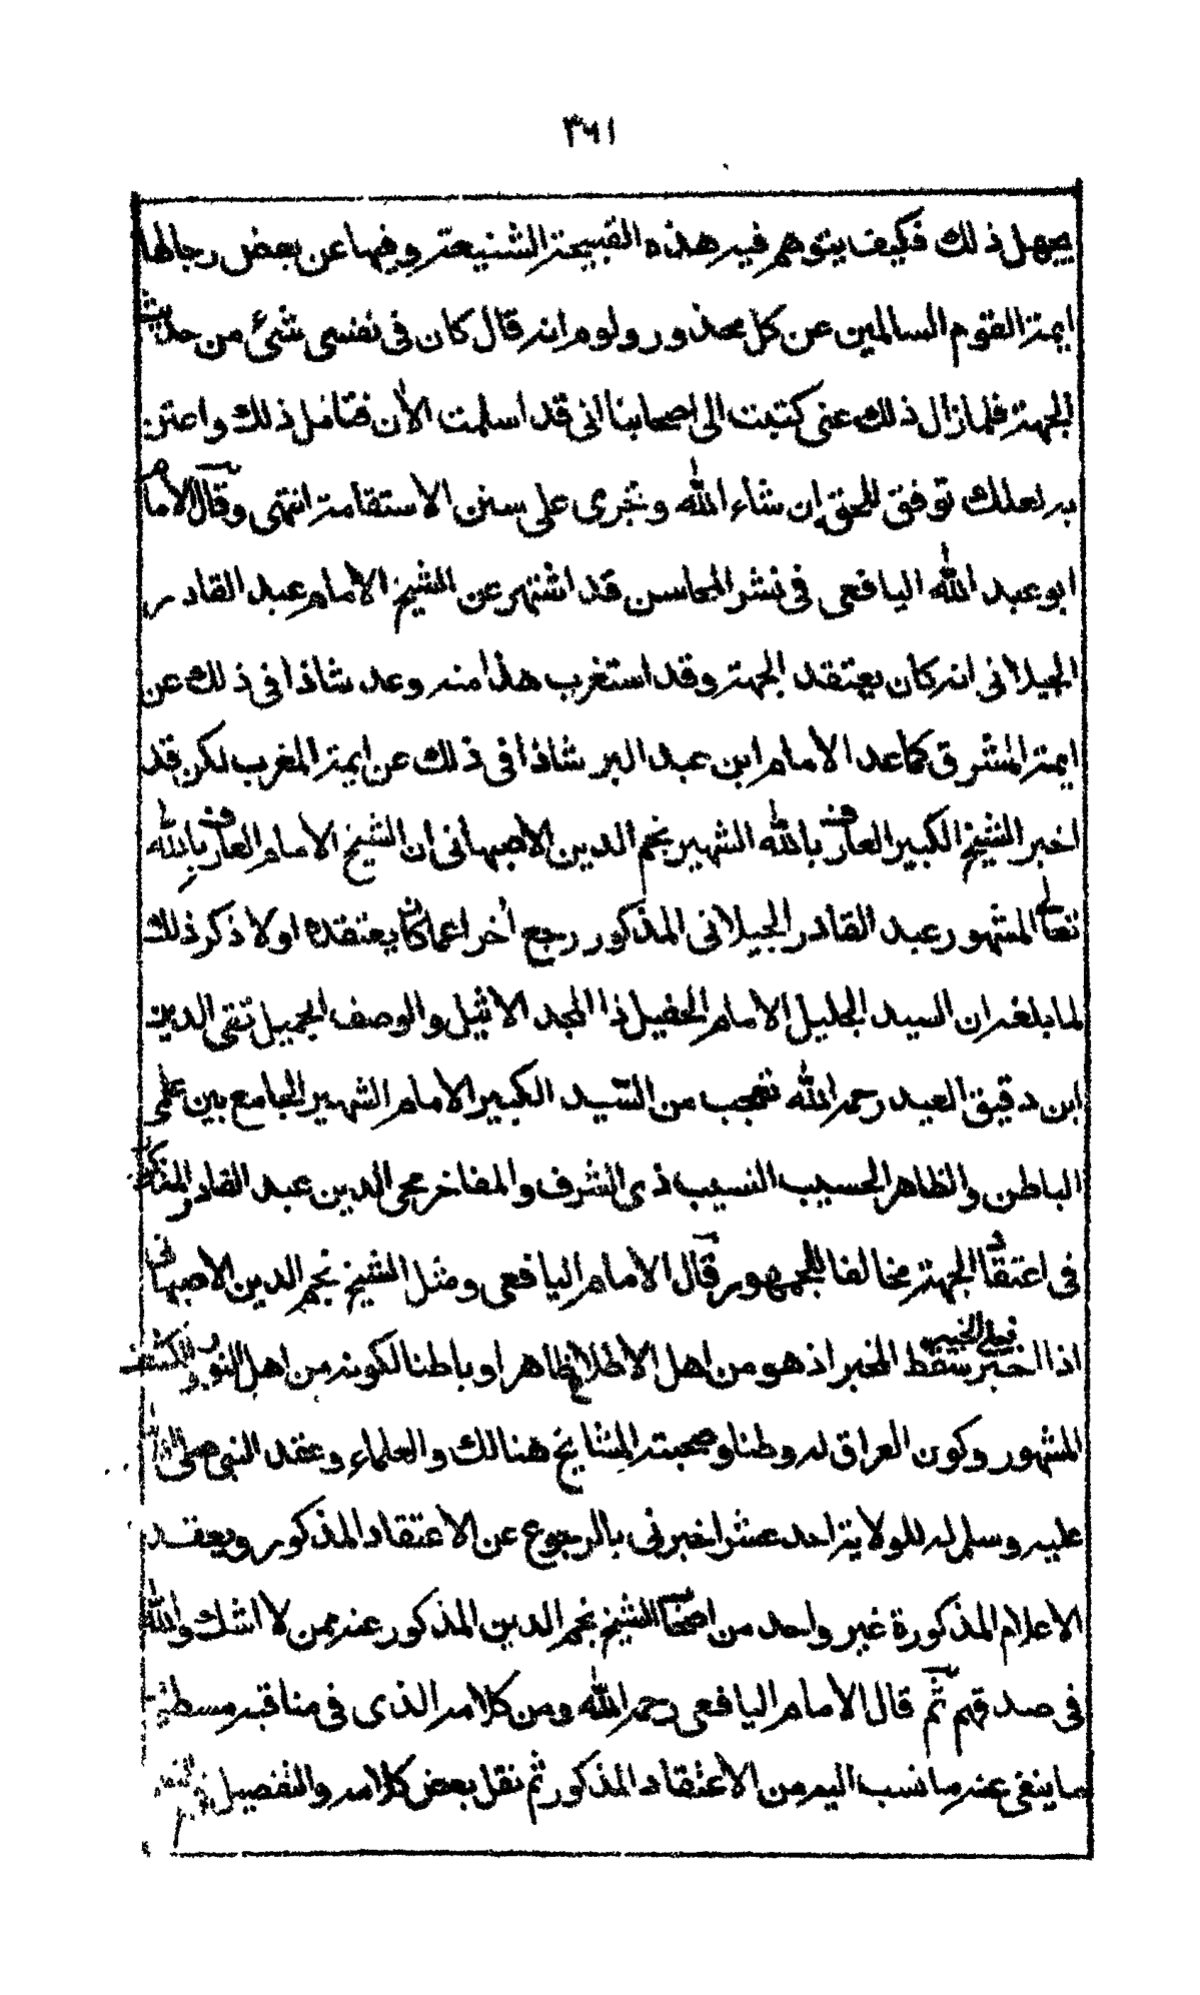 ٣٦١
يجهل ذلك فكيف يتوهم فيه هذه القبيحة الشنيعة وفيها عن بعض رجالها
ايمة القوم السالمين عن كل محذور ولوم انه قال كان في نفسي شئ من حديث
الجهة فلما زال ذلك عني كتبت الى اصحابنا اني قد اسلمت الآن فتامل ذلك واعتن
به لعلك توفق للحق إن شاء الله وتجرى على سنن الاستقامة انتهى وقال الامام
ابو عبد الله اليافعى في نشر المحاسن قد اشتهر عن الشيخ الامام عبد القادر
الجيلانى انه كان يعتقد الجهة وقد استغرب هذا منه وعد شاذا في ذلك عن
ايمة المشرق كما عد الامام ابن عبد البر شاذا في ذلك عن ايمة المغرب لكن قد
اخبر الشيخ الكبير العارف بالله الشهير نجم الدين الاصبهانى ان الشيخ الامام العارف بالله
تعالى المشهور عبد القادر الجيلانى المذكور رجع أخرا عما كان يعتقده اولا ذكر ذلك
لما بلغه ان السيد الجليل الامام الحفيل ذا المجد الاثيل والوصف الجميل تقى الدين
ابن دقيق العيد رحمه الله تعجب من السيد الكبير الامام الشهير الجامع بين علمى
الباطن والظاهر الحسيب النسيب ذى الشرف والمفاخر محى الدين عبد القادر المذكور
فى اعتقاد الجهة مخالفا للجمهور قال الامام اليافعى ومثل الشيخ نجم الدين الاصبهانى
اذا اخبر فعلى الخبير سقط المخبر اذ هو من اهل الاطلاع ظاهرا وباطنا لكونه من اهل النور والكشف
المشهور وكون العراق له وطنا وصحبته المشايخ هنالك والعلماء وعقد النبي صلى الله
عليه وسلم له للولاية احد عشر اخبرنى بالرجوع عن الاعتقاد المذكور ويعقد
الاعلام المذكورة غير واحد من اصحاب الشيخ نجم الدين المذكور عنه ممن لا اشك والله
فى صدقهم ثم قال الامام اليافعى رحمه الله ومن كلامه الذى فى مناقبه مسطر
ما ينفى عنه ما نسب اليه من الاعتقاد المذكور ثم نقل بعض كلامه والتفصيل